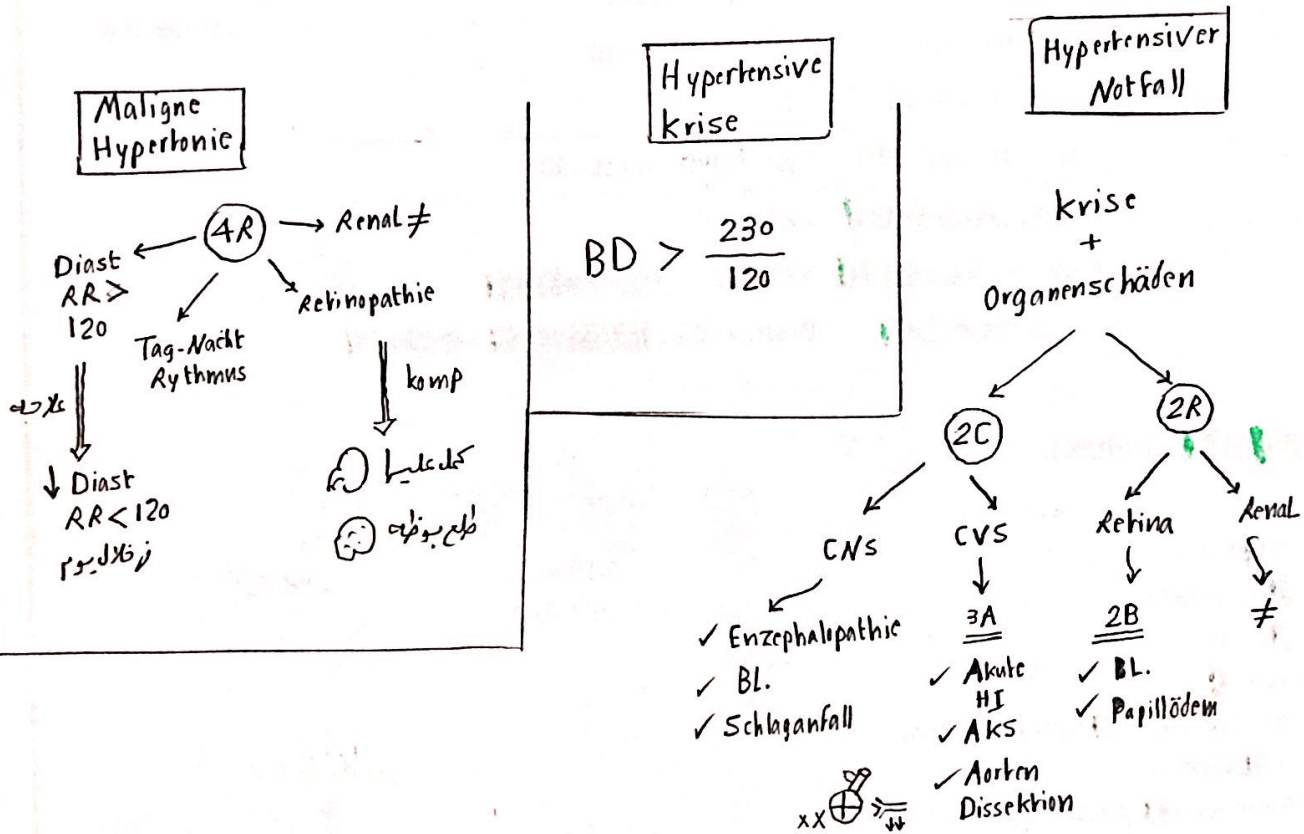 Maligne
Hypertonie
4R
Renal ≠
Diast
RR >
120
Tag-Nacht
Rythmus
Retinopathie
علاجه
komp
↓ Diast
RR < 120
خلال يوم
Hypertensive
krise
BD > 230
120
Hypertensiver
Notfall
krise
+
Organenschäden
2C
2R
CNS
CVS
Retina
Renal
✓ Enzephalopathie
✓ BL.
✓ Schlaganfall
3A
✓ Akute
HI
✓ AKS
✓ Aorten
Dissektion
2B
✓ BL.
✓ Papillödem
≠
xx